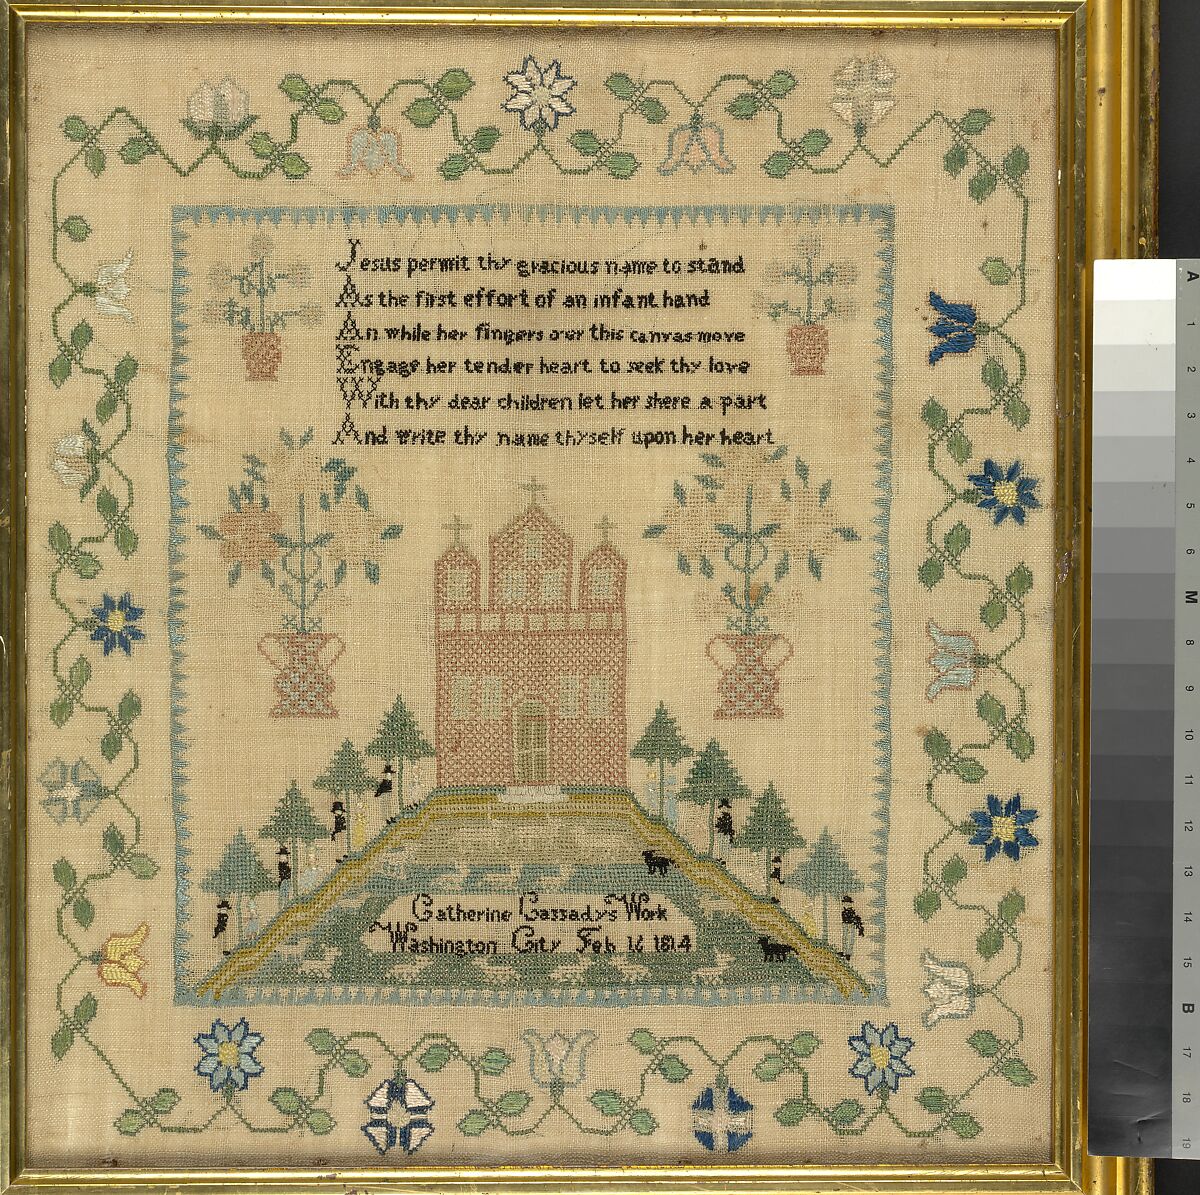 Jesus permit thy gracious name to stand
As the first effort of an infant hand
An while her fingers over this canvas move
Engage her tender heart to seek thy love
With thy dear children let her shere a part
And write thy name thyself upon her heart
Catherine CassadysWork
Washington City Feb 16 1814
A
1
2
3
4
5
6
M
8
9
10
11
12
13
14
15
B
17
18
19